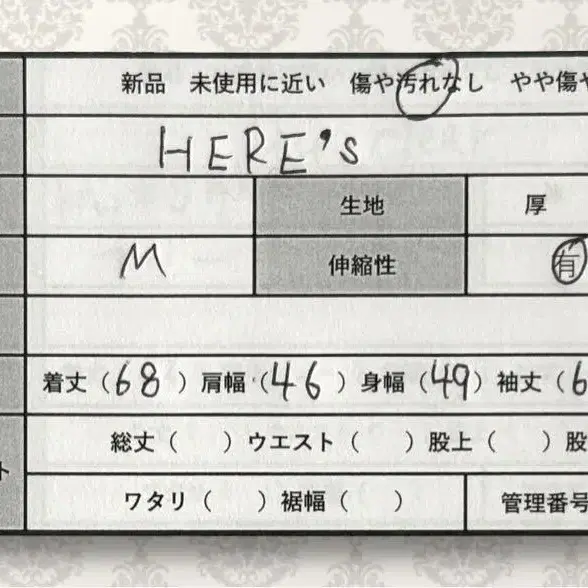 新品 未使用に近い 傷や汚れなし やや傷や
HERE's
生地 厚
M 伸縮性 有
着丈（68）肩幅（46）身幅（49）袖丈（6
総丈（ ）ウエスト（ ）股上（ ）股
ト
ワタリ（ ）裾幅（ ） 管理番号